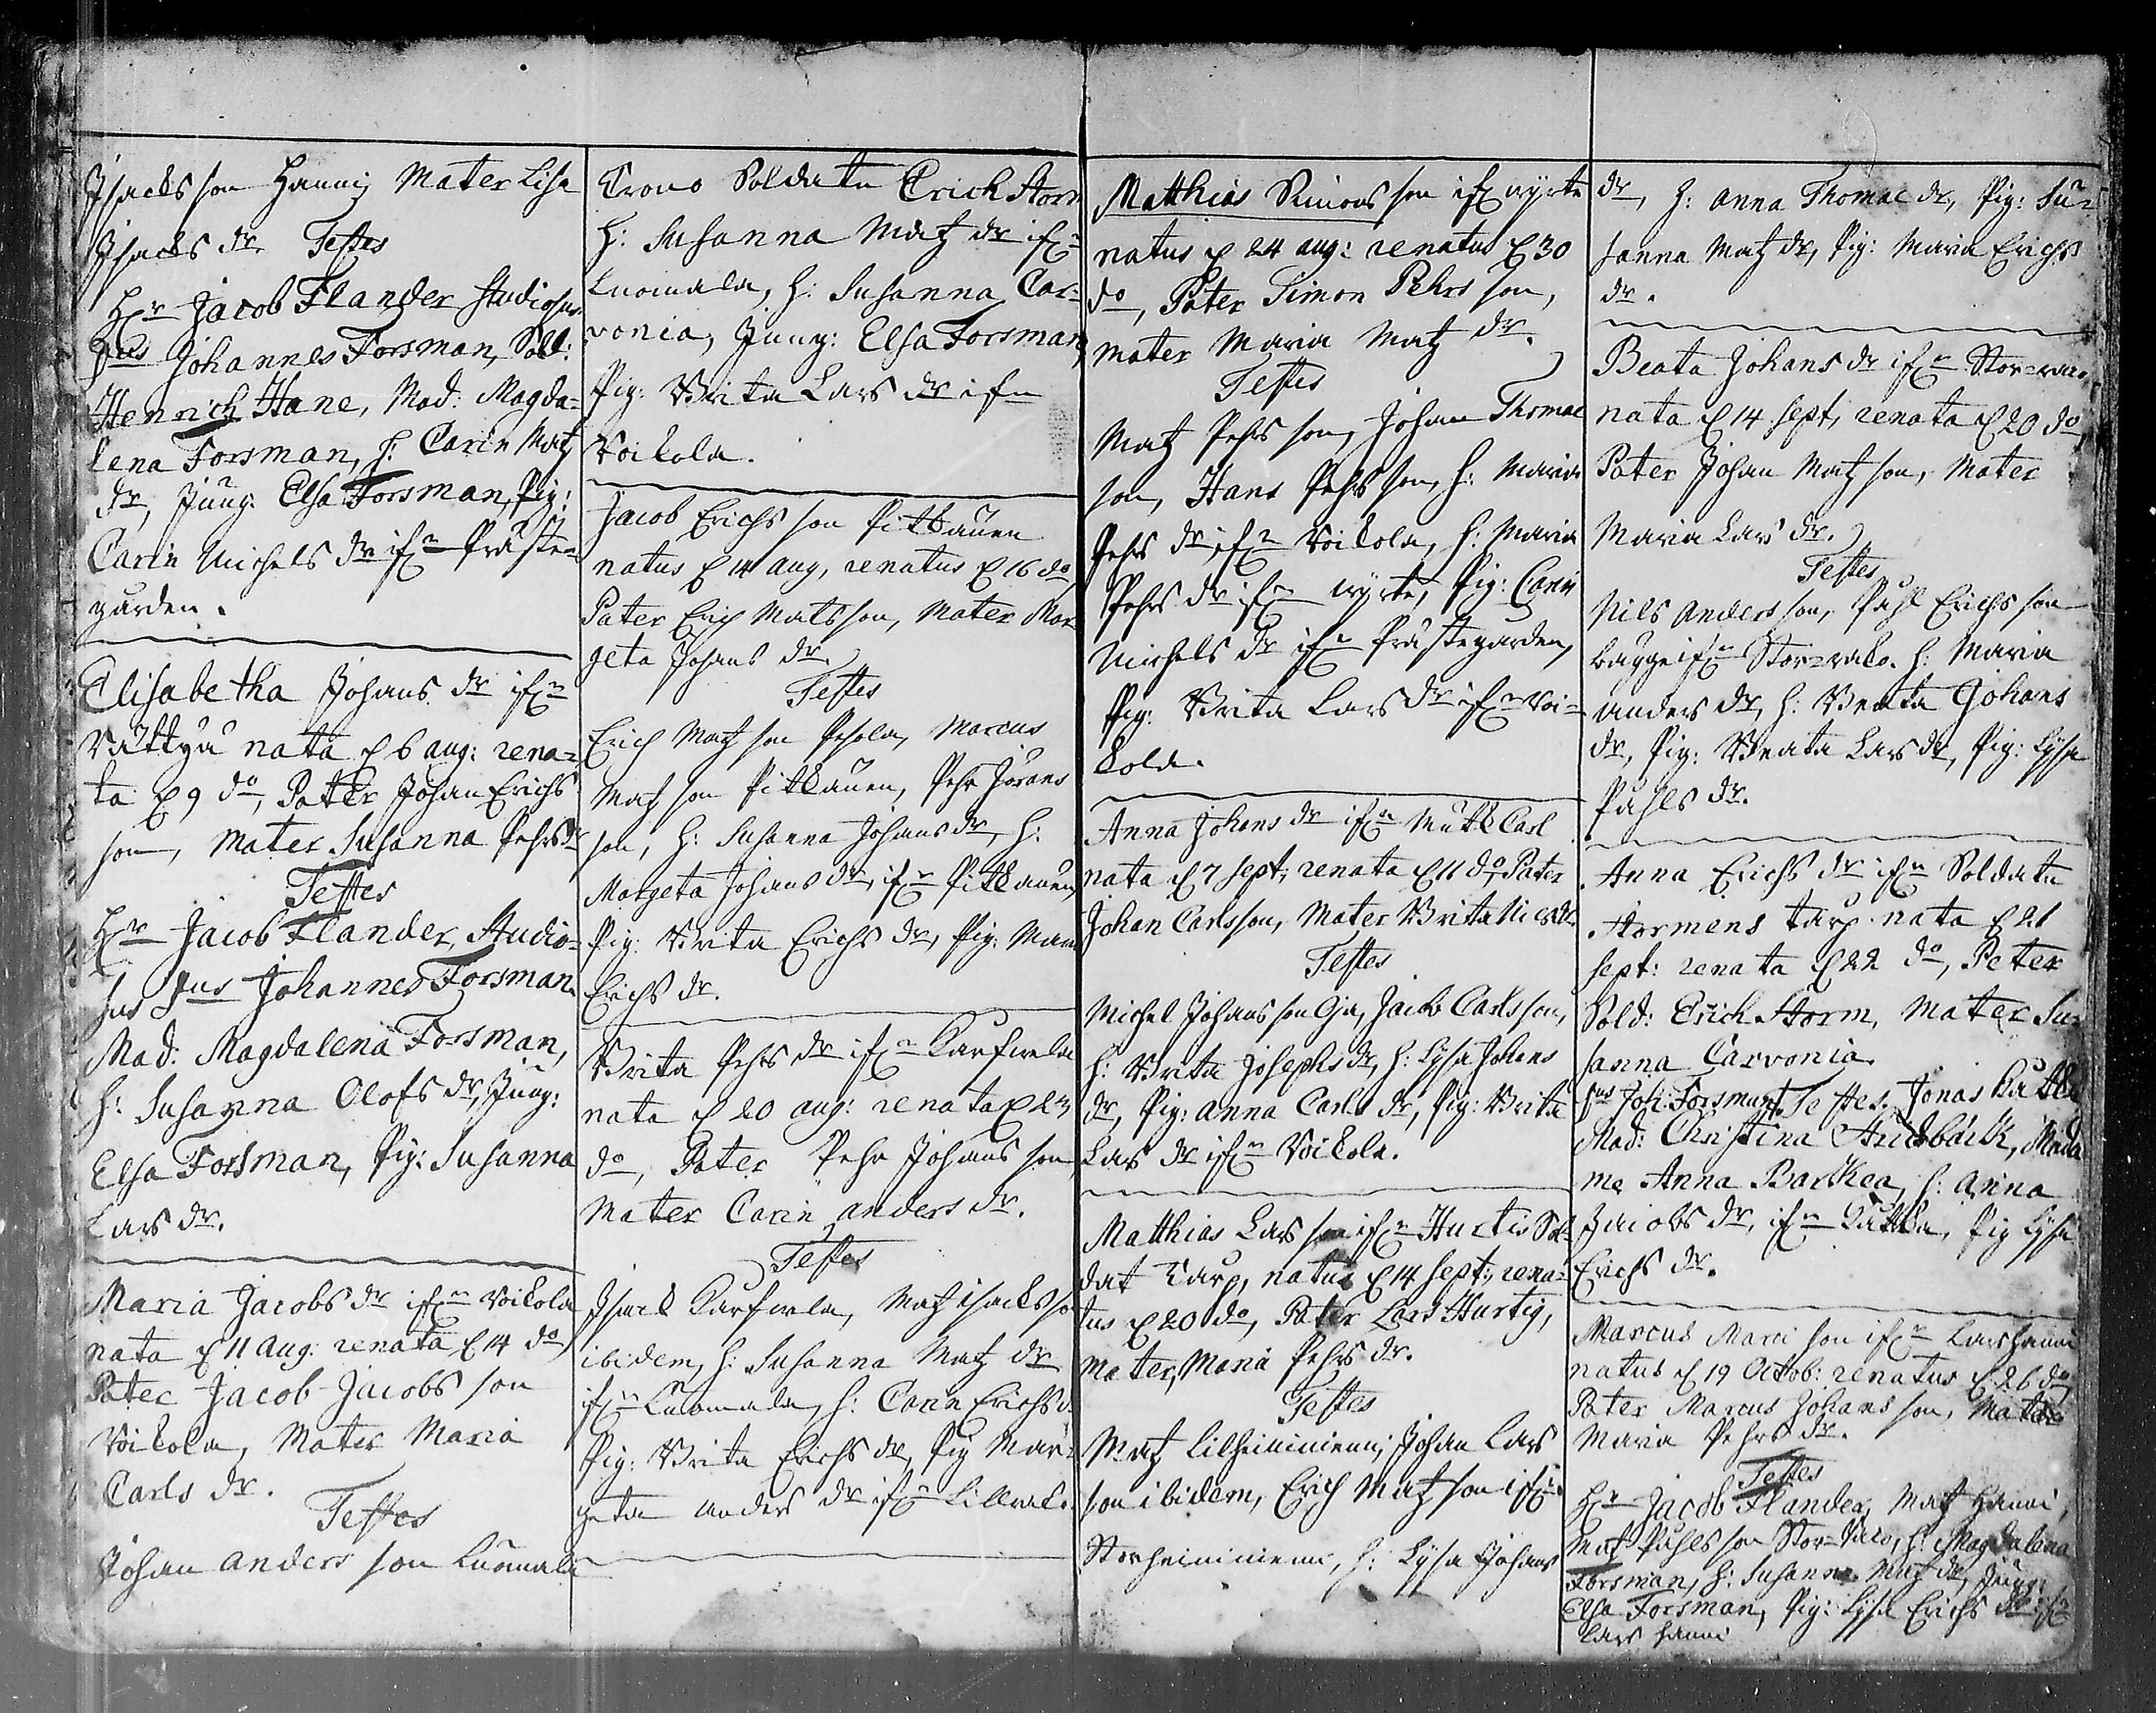 Isacks son Hanni, Mater Lisa
Isacks dr. Testes
Hr Jacob Flander Studiosus
Johannes Forsman, Sold:
Henrich Hane, Mad: Magda=
lena Forsman, h: Carin Matz
dr, Jung: Elsa Forsman, Pig:
Carin Michels dr ifrn Präste=
gården.
Elisabetha Johans dr ifrn
nata d 6 aug: rena=
ta d 9 do, Pater Johan Erichs
son, Mater Susanna Pehrs dr
Testes
Hr Jacob Flander, Studio=
sus Johannes Forsman
Mad: Magdalena Forsman,
h: Susanna Olofs dr, Jung:
Elsa Forsman, Pig: Susanna
Lars dr.
Maria Jacobs dr ifrn Voikola
nata d 11 aug: renata d 14 do
Pater Jacob Jacobs son
Voikola, Mater Maria
Carls dr.
Testes
Johan Anders son Luomala
Crono Soldaten Erich Storm
h: Susanna Matz dr ifrn
Luomala, h: Susanna Car=
vonia, Jung: Elsa Forsman,
Pig: Brita Lars dr ifrn
Voikola.
Jacob Erichs son Pitkänen
natus d 14 aug, renatus d 16 do
Pater Erich Mats son, Mater Mar=
geta Johans dr.
Testes
Erich Matz son Pesola, Marcus
Matz son Pitkänen, Pehr Jörans
son, h: Susanna Johans dr, h:
Margeta Johans dr, ifrn Pitkänen,
Pig: Brita Erichs dr, Pig: Maria
Erichs dr.
Brita Pehrs dr ifrn
nata d 20 aug: renata d 23
do, Pater Pehr Johans son
Mater Carin Anders dr.
Testes
Isack Matz Isacks so
ibidem, h: Susanna Matz dr
ifrn Luomala, h: Carin Erichs d
Pig: Brita Erichs dr, Pig Mar=
geta Anders dr ifrn Lillrank.
Matthias Simons son ifrn Nyrte
natus d 24 aug: renatus d 30
do, Pater Simon Pehrs son,
Mater Maria Matz dr.
Testes
Matz Pehrs son, Johan Thomae
son, Hans Pehrs son, h: Maria
Pehrs dr ifrn Voikola, h: Maria
Pehrs dr ifrn Nyrte, Pig: Carin
Michels dr ifrn Prästegården,
Pig: Brita Lars dr ifrn Voi=
kola.
Anna Johans dr ifrn
nata d 7 sept, renata d 11 do, Pater
Johan Carls son, Mater Brita
Testes
Michel Johans son Oja, Jacob Carls son,
h: Brita Josephs dr, h: Lysa Johans
dr, Pig: Anna Carls dr, Pig: Brita
Lars dr ifrn Voikola.
Matthias Lars son ifrn Hurtis Sol=
dat Tarp, natus d 14 sept, rena=
tus d 20 do, Pater Lars Hurtig,
Mater, Maria Pehrs dr.
Testes
Matz Lilheininiemi, Johan Lars
son ibidem, Erich Matz son ifrn
Storheininiemi, h: Lysa Johans
dr, h: Anna Thomae dr, Pig: Su=
sanna Matz dr, Pig: Maria Erichs
dr.
Beata Johans dr ifrn
nata d 14 sept, renata d 20 do
Pater Johan Matz son, Mater
Maria Lars dr.
Testes
Nils Anders son, Påhl Erichs son
bägge ifrn h: Maria
Anders dr, h: Beata Johans
dr, Pig: Beata Lars dr, Pig: Lysa
Påhls dr.
Anna Erichs dr ifrn Soldaten
Stormens tarp nata d 21
sept: renata d 22 do, Pater
Sold: Erich Storm, Mater Su=
sanna Carvonia.
Joh: Forsman, Testes, Jonas
Mad: Christina Mada
me Anna Barthea, h: Anna
Jacobs dr, ifrn Pig Lysa
Erichs dr.
Marcus Marci son ifrn Lars hanni
natus d 19 Octob: renatus d 26 do
Pater Marcus Johans son, Mater
Maria Pehrs dr.
Testes
Hr Jacob Flander, Matz Hanni,
Matz Påhls son h: Magdalena
Forsman, h: Susanna Matz dr, Jung:
Elsa Forsman, Pig: Lysa Erichs dr ifrn
Lars hanni